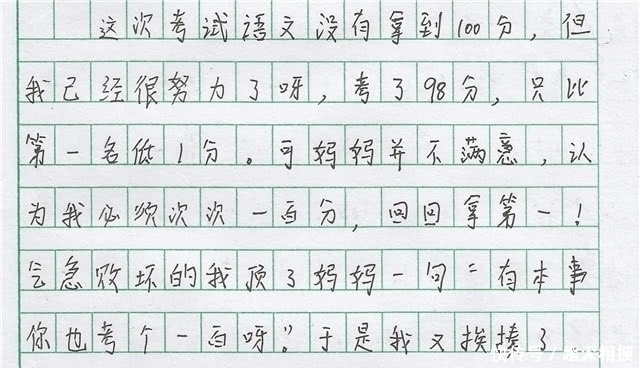 这次考试语文没有拿到100分，但
我已经很努力了呀，考了98分，只比
第一名低1分。可妈妈并不满意，认
为我必须次次一百分，回回拿第一！
气急败坏的我顶了妈妈一句：“有本事
你也考个一百呀！”于是我又挨揍了
快传号/